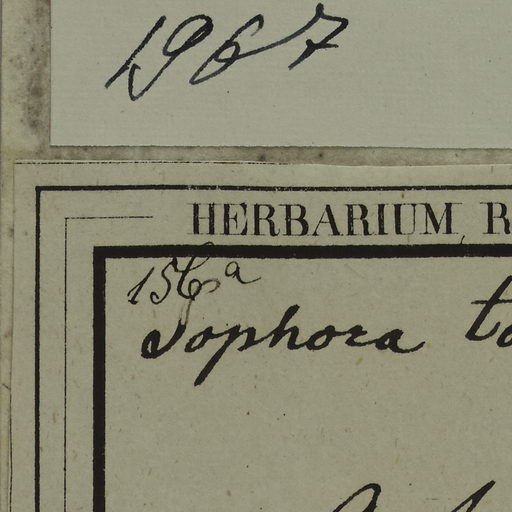 1967
HERBARIUM R
156a
Sophora to